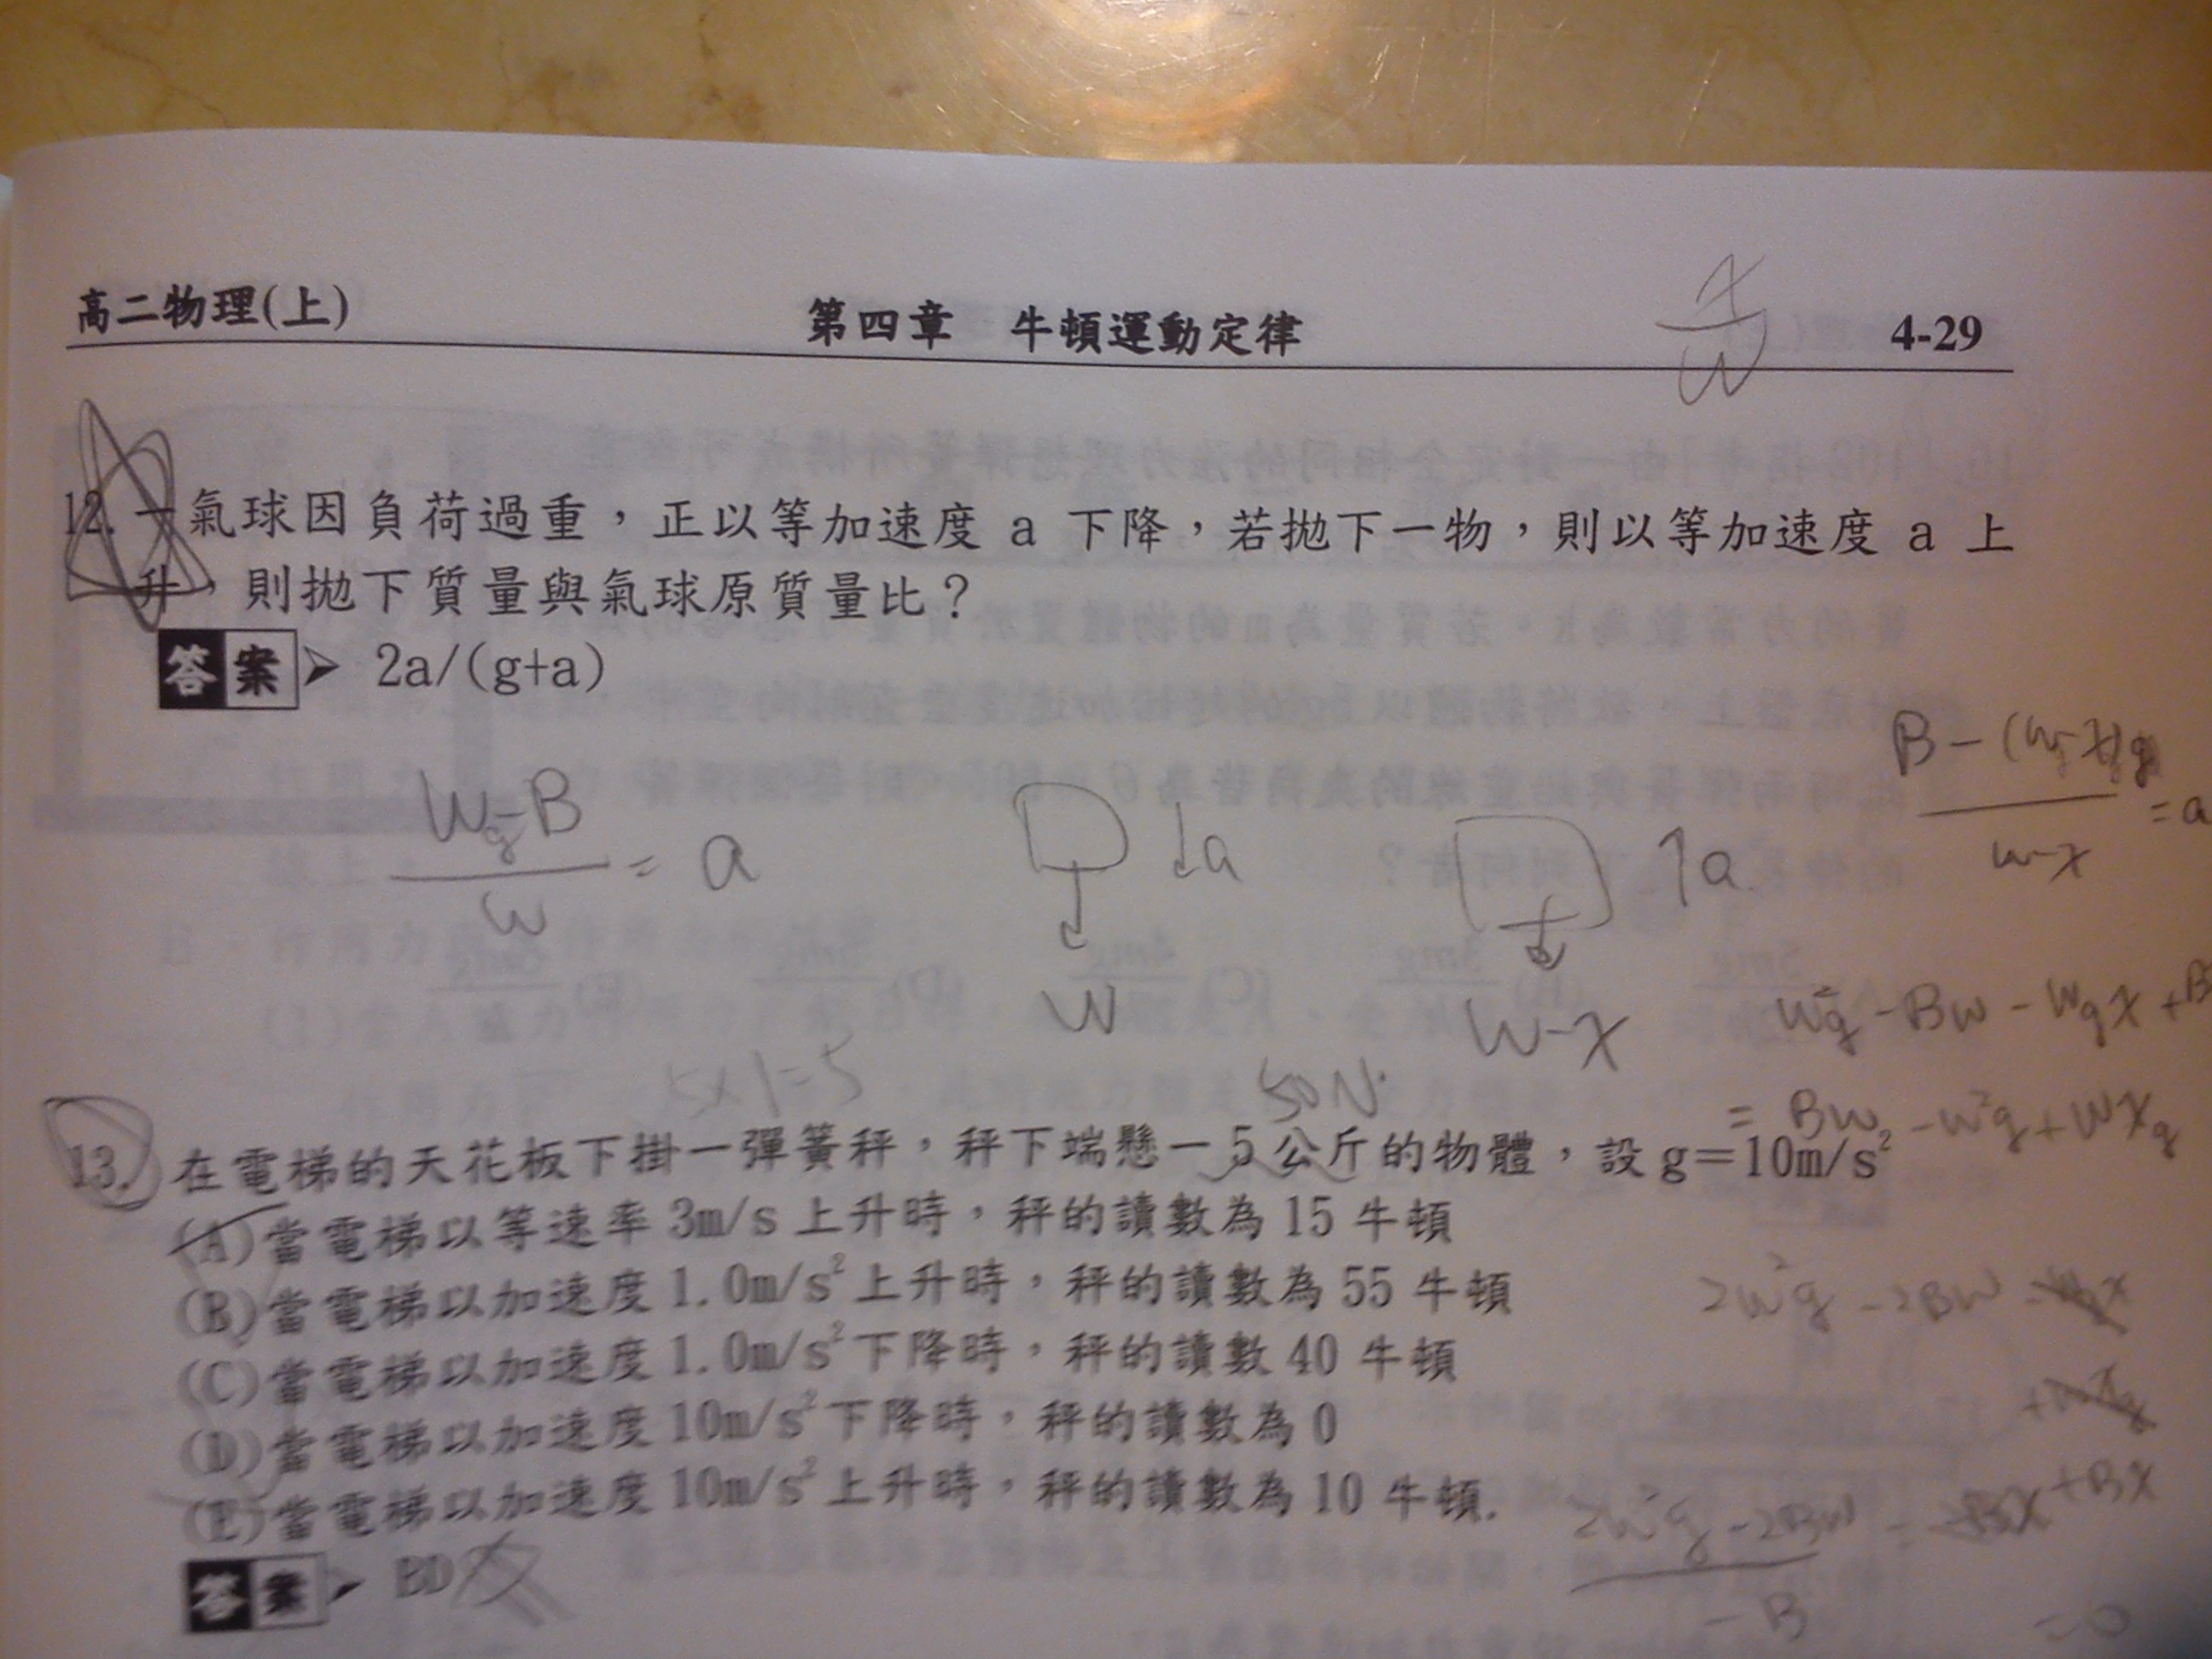 高二物理(上) 第四章 牛頓運動定律 4-29
x/w
12. 一氣球因負荷過重，正以等加速度 a 下降，若拋下一物，則以等加速度 a 上
升，則拋下質量與氣球原質量比？
答案➤ 2a/(g+a)
Wg-B
W
= a
↓a
W
↑a
W-x
B-(w-x)g
w-x
= a
W²g - Bw - Wgx + B
= Bw - w²g + wxg
5×1=5
50N
13. 在電梯的天花板下掛一彈簧秤，秤下端懸一 5 公斤的物體，設 g＝10m/s²
(A)當電梯以等速率 3m/s 上升時，秤的讀數為 15 牛頓
(B)當電梯以加速度 1.0m/s² 上升時，秤的讀數為 55 牛頓
(C)當電梯以加速度 1.0m/s² 下降時，秤的讀數 40 牛頓
(D)當電梯以加速度 10m/s² 下降時，秤的讀數為 0
(E)當電梯以加速度 10m/s² 上升時，秤的讀數為 10 牛頓.
答案➤ BD
2w²g - 2Bw
2w²g - 2Bw
-B
+Bx
= 0